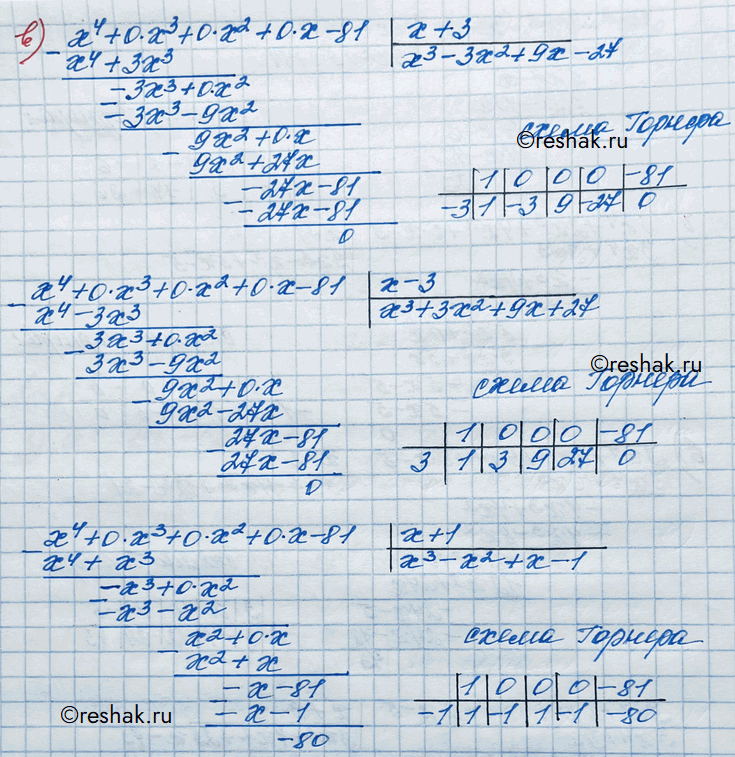 в) x⁴+0·x³+0·x²+0·x-81 | x+3
- x⁴+3x³ | x³-3x²+9x-27
-3x³+0·x²
- -3x³-9x²
9x²+0·x
- 9x²+27x
-27x-81
- -27x-81
0
схема Горнера
©reshak.ru
1 | 0 | 0 | 0 | -81
-3 | 1 | -3 | 9 | -27 | 0
x⁴+0·x³+0·x²+0·x-81 | x-3
- x⁴-3x³ | x³+3x²+9x+27
3x³+0·x²
- 3x³-9x²
9x²+0·x
- 9x²-27x
27x-81
- 27x-81
0
©reshak.ru
схема Горнера
1 | 0 | 0 | 0 | -81
3 | 1 | 3 | 9 | 27 | 0
x⁴+0·x³+0·x²+0·x-81 | x+1
- x⁴+x³ | x³-x²+x-1
-x³+0·x²
- -x³-x²
x²+0·x
- x²+x
-x-81
- -x-1
-80
схема Горнера
1 | 0 | 0 | 0 | -81
-1 | 1 | -1 | 1 | -1 | -80
©reshak.ru